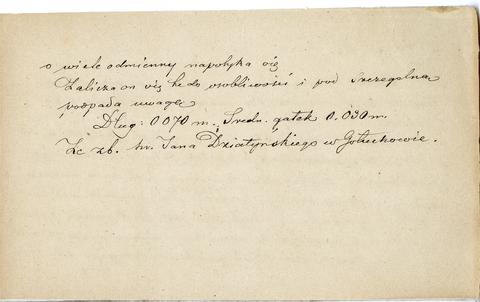 o wiele odmienny napotyka się
Zalicza on się też do osobliwości i pod szczególną
podpada uwagę
Dług: 0.070 m., Średn. gałek 0.030 m.
Ze zb. hr. Jana Działyńskiego w Gołuchowie.